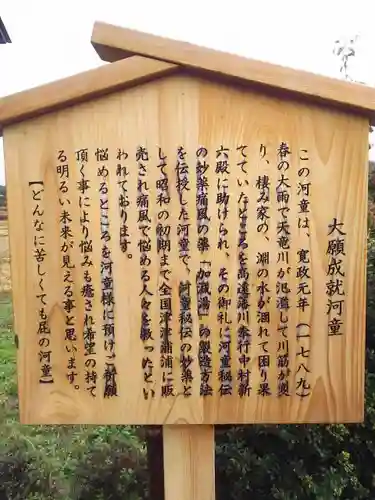 大願成就河童
この河童は、寛政元年(一七八九)
春の大雨で天竜川が氾濫して川筋が変
り、棲み家の、淵の水が涸れて困り果
てていたところを高遠藩川奉行中村新
六殿に助けられ、その御礼に河童秘伝
の妙薬痛風の薬「加減湯」の製造方法
を伝授した河童で、河童秘伝の妙薬と
して昭和の初期まで全国津々浦浦に販
売され痛風で悩める人々を救ったとい
われております。
悩めるところを河童様に預けご祈願
頂く事により悩みも癒され希望の持て
る明るい未来が見える事と思います。
【どんなに苦しくても屁の河童】